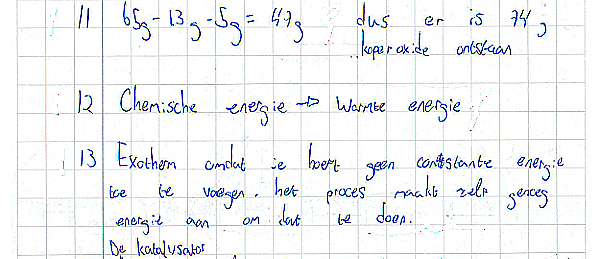 11 65g - 13g - 5g = 47g dus er is 74g
koperoxide ontstaan
12 Chemische energie → Warmte energie
13 Exotherm omdat je hoeft geen constante energie
toe te voegen. het proces maakt zelf genoeg
energie aan om dat te doen.
De katalysator